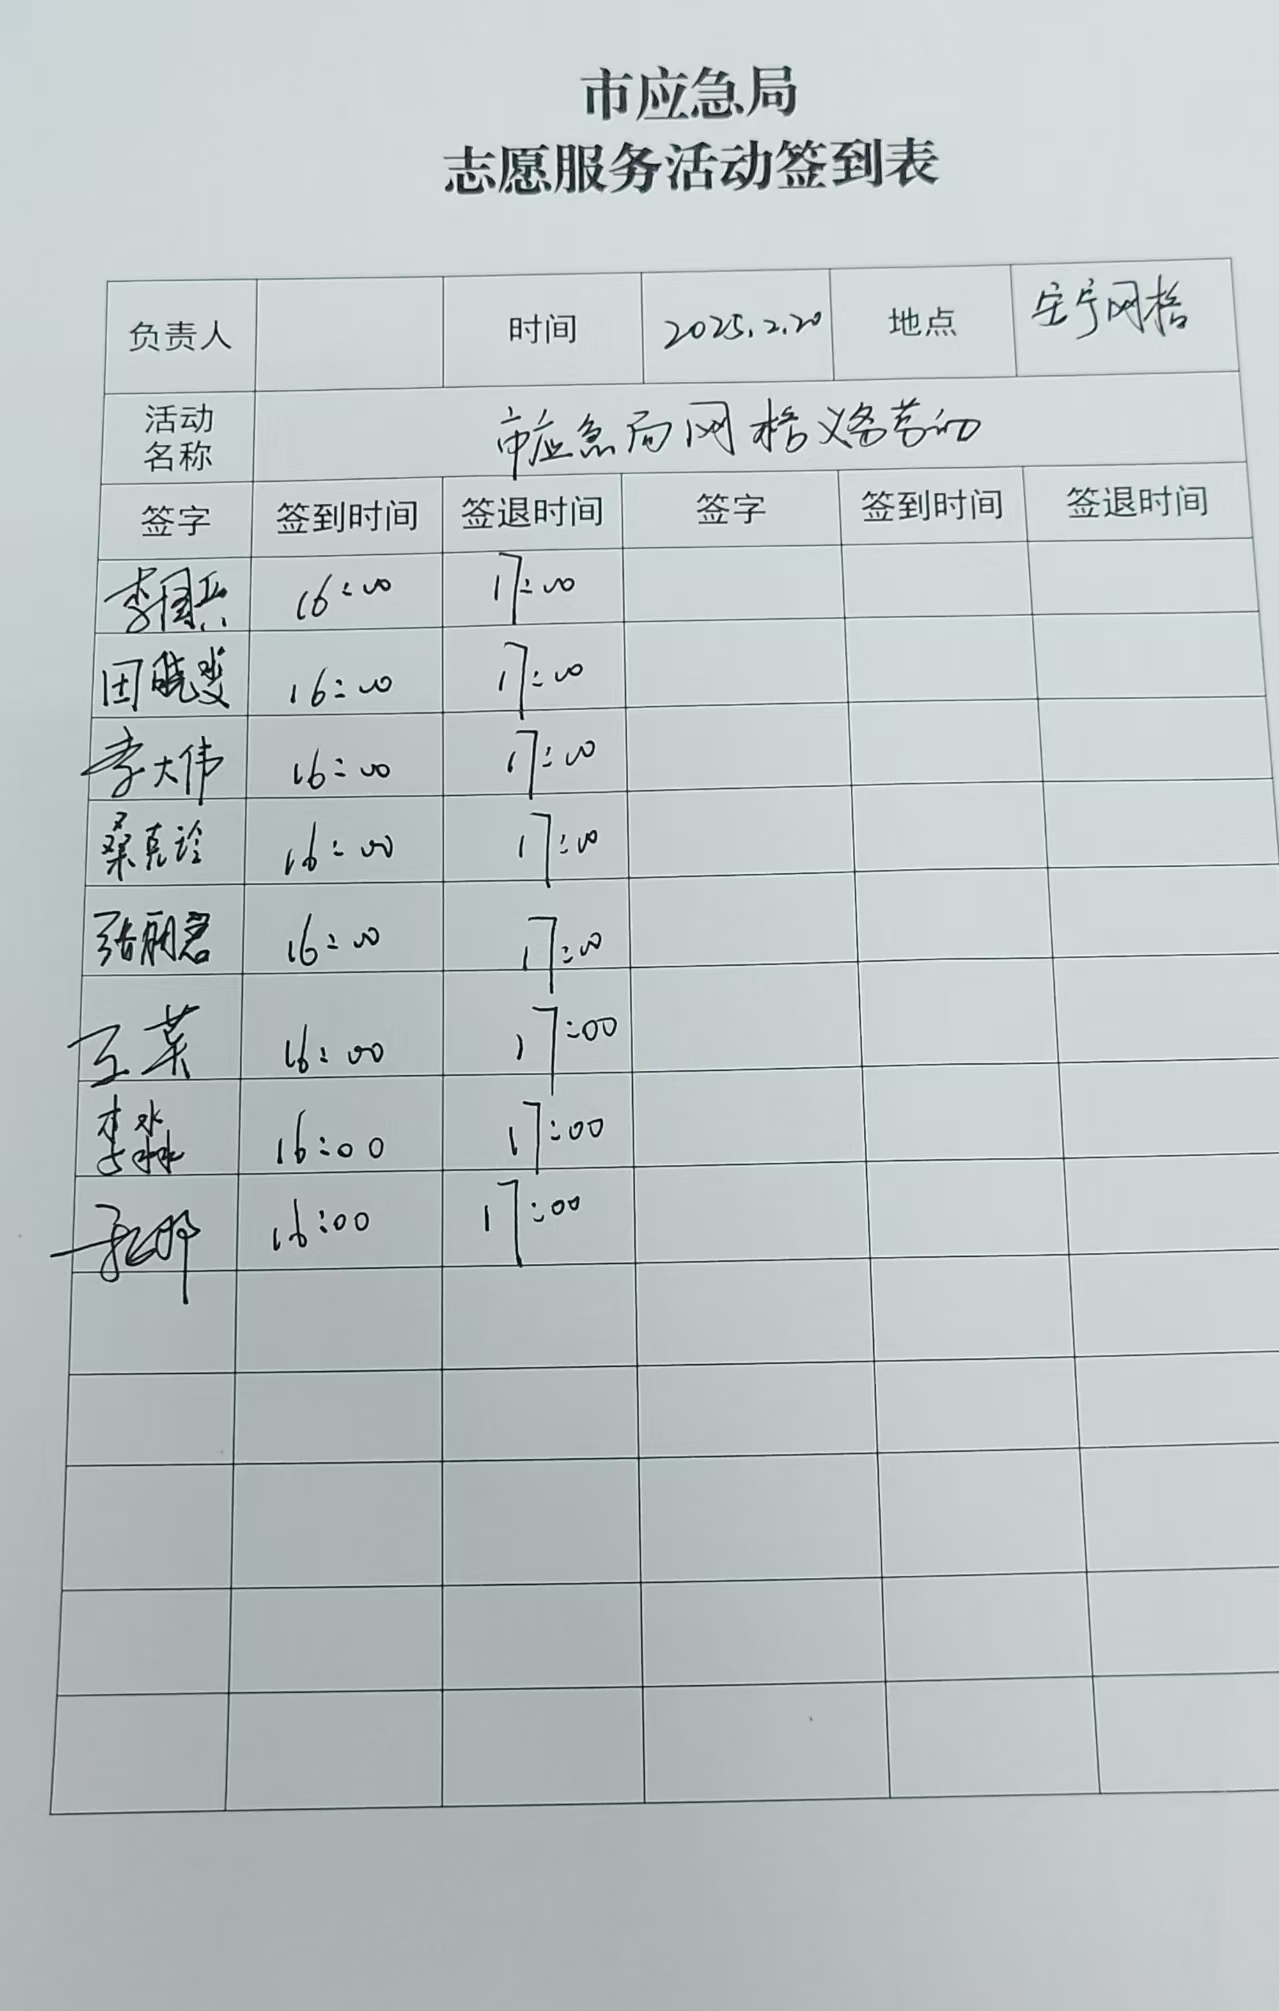 市应急局
志愿服务活动签到表
负责人 时间 2025.2.20 地点 安宁网格
活动名称 市应急局网格义务劳动
签字 签到时间 签退时间 签字 签到时间 签退时间
李国兴 16:00 17:00
田晓雯 16:00 17:00
李大伟 16:00 17:00
桑克玲 16:00 17:00
张丽君 16:00 17:00
王英 16:00 17:00
李淼 16:00 17:00
16:00 17:00